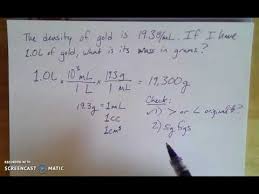 The density of gold is 19.3g/mL. If I have
1.0L of gold, what is its mass in grams?
1.0L × 10³mL / 1L × 19.3g / 1mL = 19,300g
19.3g = 1mL
1cc
1cm³
Check:
✓1) > or < original?
2) sig figs
RECORDED WITH
SCREENCAST-O-MATIC